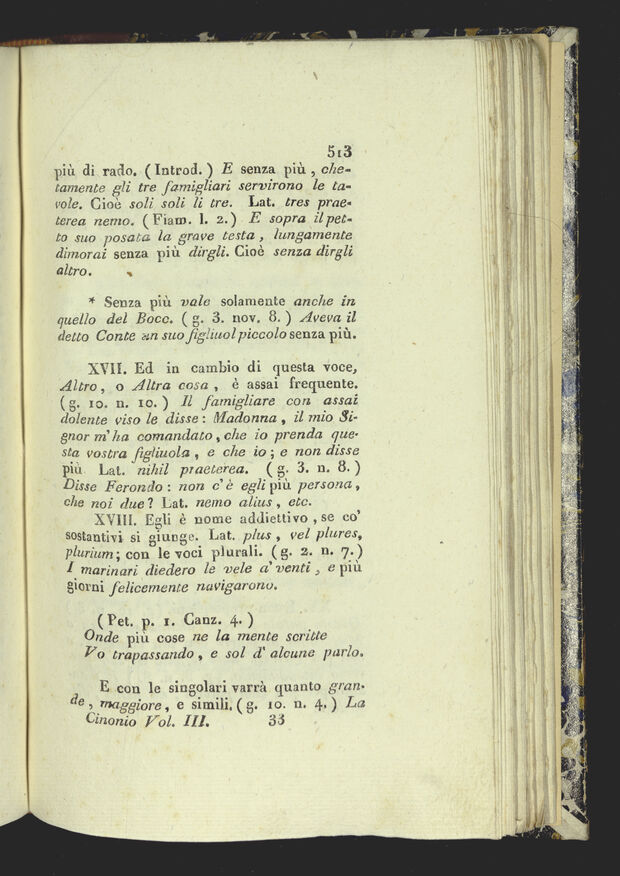 513
più di rado. (Introd.) E senza più, che-
tamente gli tre famigliari servirono le ta-
vole. Cioè soli soli li tre. Lat. tres prae-
terea nemo. (Fiam. l. 2.) E sopra il pet-
to suo posata la grave testa, lungamente
dimorai senza più dirgli. Cioè senza dirgli
altro.
* Senza più vale solamente anche in
quello del Bocc. (g. 3. nov. 8.) Aveva il
detto Conte un suo figliuol piccolo senza più.
XVII. Ed in cambio di questa voce,
Altro, o Altra cosa, è assai frequente.
(g. 10. n. 10.) Il famigliare con assai
dolente viso le disse: Madonna, il mio Si-
gnor m'ha comandato, che io prenda que-
sta vostra figliuola, e che io; e non disse
più Lat. nihil praeterea. (g. 3. n. 8.)
Disse Ferondo: non c'è egli più persona,
che noi due? Lat. nemo alius, etc.
XVIII. Egli è nome addiettivo, se co'
sostantivi si giunge. Lat. plus, vel plures,
plurium; con le voci plurali. (g. 2. n. 7.)
I marinari diedero le vele a' venti, e più
giorni felicemente navigarono.
(Pet. p. 1. Canz. 4.)
Onde più cose ne la mente scritte
Vo trapassando, e sol d' alcune parlo.
E con le singolari varrà quanto gran-
de, maggiore, e simili. (g. 10. n. 4.) La
Cinonio Vol. III. 33